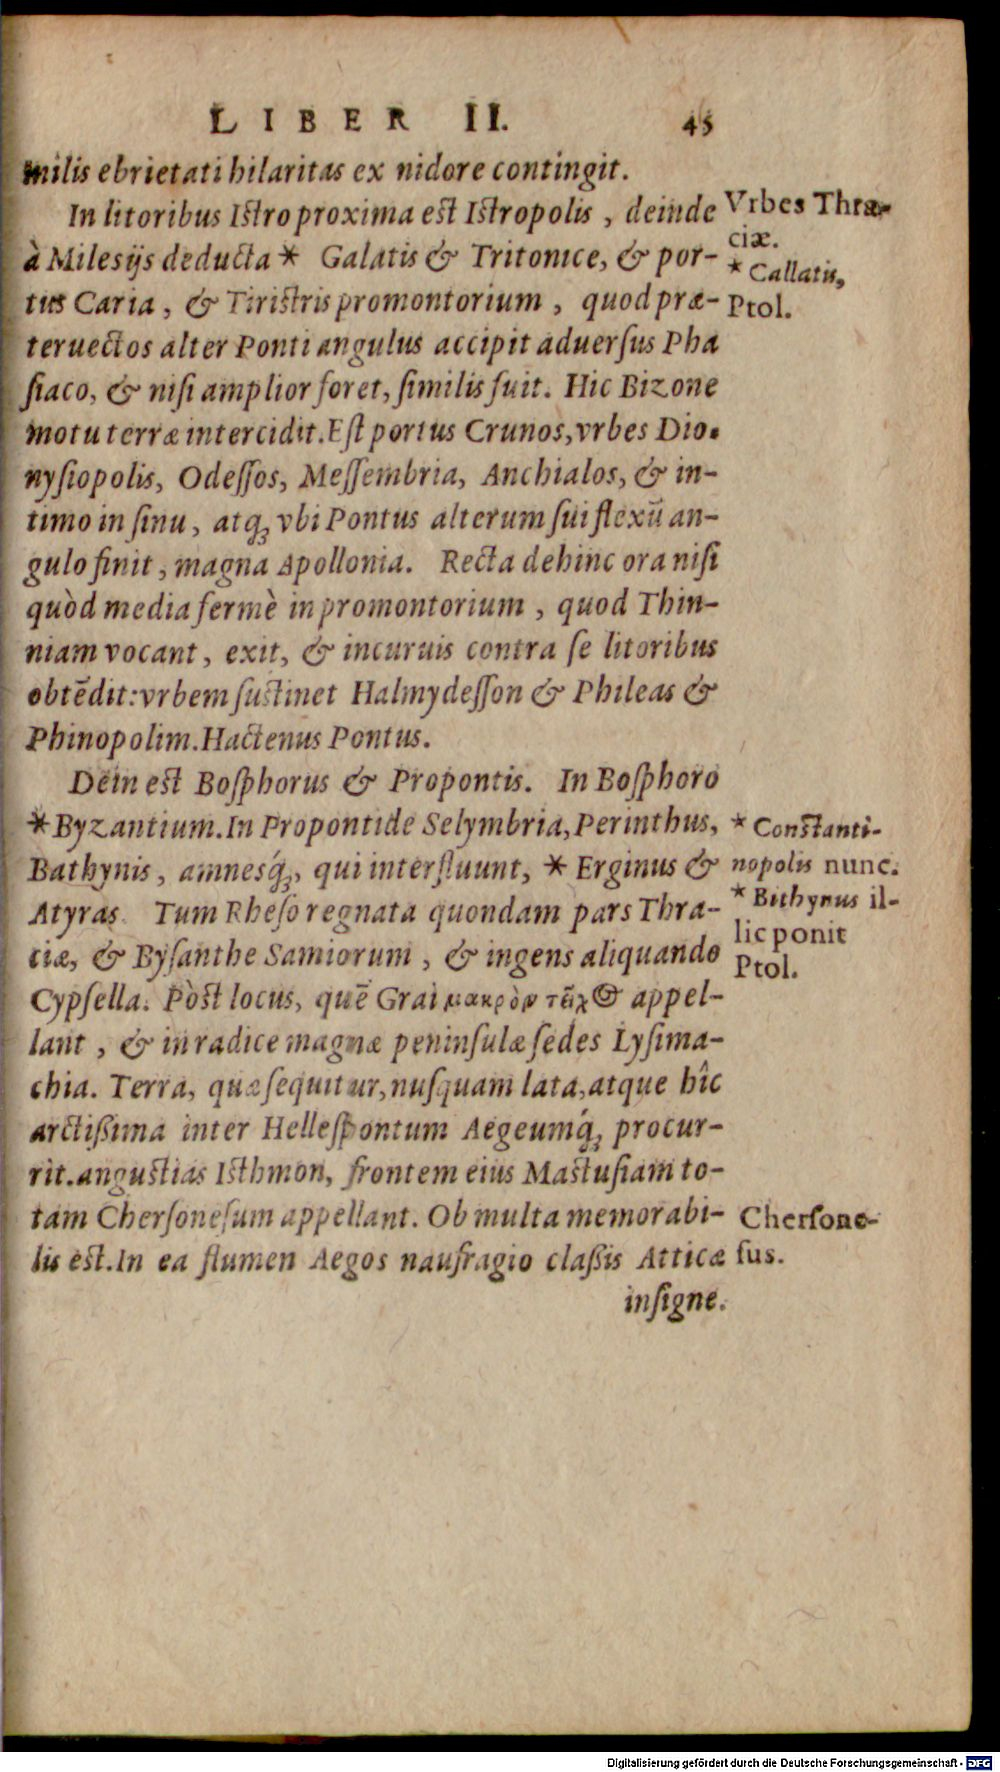 LIBER II. 45
milis ebrietati hilaritas ex nidore contingit.
In litoribus Istro proxima est Istropolis, deinde
à Milesijs deducta * Galatis & Tritonice, & por-
tus Caria, & Tiristris promontorium, quod præ-
teruectos alter Ponti angulus accipit aduerſus Pha
ſiaco, & niſi amplior foret, ſimilis fuit. Hic Bizone
motu terræ intercidit. Eſt portus Crunos, vrbes Dio-
nyſiopolis, Odeſſos, Meſſembria, Anchialos, & in-
timo in ſinu, atq; vbi Pontus alterum ſui flexū an-
gulo finit, magna Apollonia. Recta dehinc ora niſi
quòd media fermè in promontorium, quod Thin-
niam vocant, exit, & incuruis contra ſe litoribus
obtēdit: vrbem ſustinet Halmydeſſon & Phileas &
Phinopolim. Hactenus Pontus.
Dein est Boſphorus & Propontis. In Boſphoro
* Byzantium. In Propontide Selymbria, Perinthus,
Bathynis, amnesq́;, qui interfluunt, * Erginus &
Atyras. Tum Rheſo regnata quondam pars Thra-
ciæ, & Byſanthe Samiorum, & ingens aliquando
Cypſella. Pòst locus, quē Grai μακρὸν τεῖχος appel-
lant, & in radice magnæ peninſulæ ſedes Lyſima-
chia. Terra, quæ ſequitur, nuſquam lata, atque hîc
arctißima inter Helleſpontum Aegeumq́; procur-
rit. angustias Isthmon, frontem eius Mastuſiam to-
tam Cherſoneſum appellant. Ob multa memorabi-
lis est. In ea flumen Aegos naufragio claßis Atticæ
inſigne.
Vrbes Thræ-
ciæ.
* Callatis,
Ptol.
* Constanti-
nopolis nunc.
* Bithynus il-
lic ponit
Ptol.
Cherſone-
ſus.
Digitalisierung gefördert durch die Deutsche Forschungsgemeinschaft - DFG